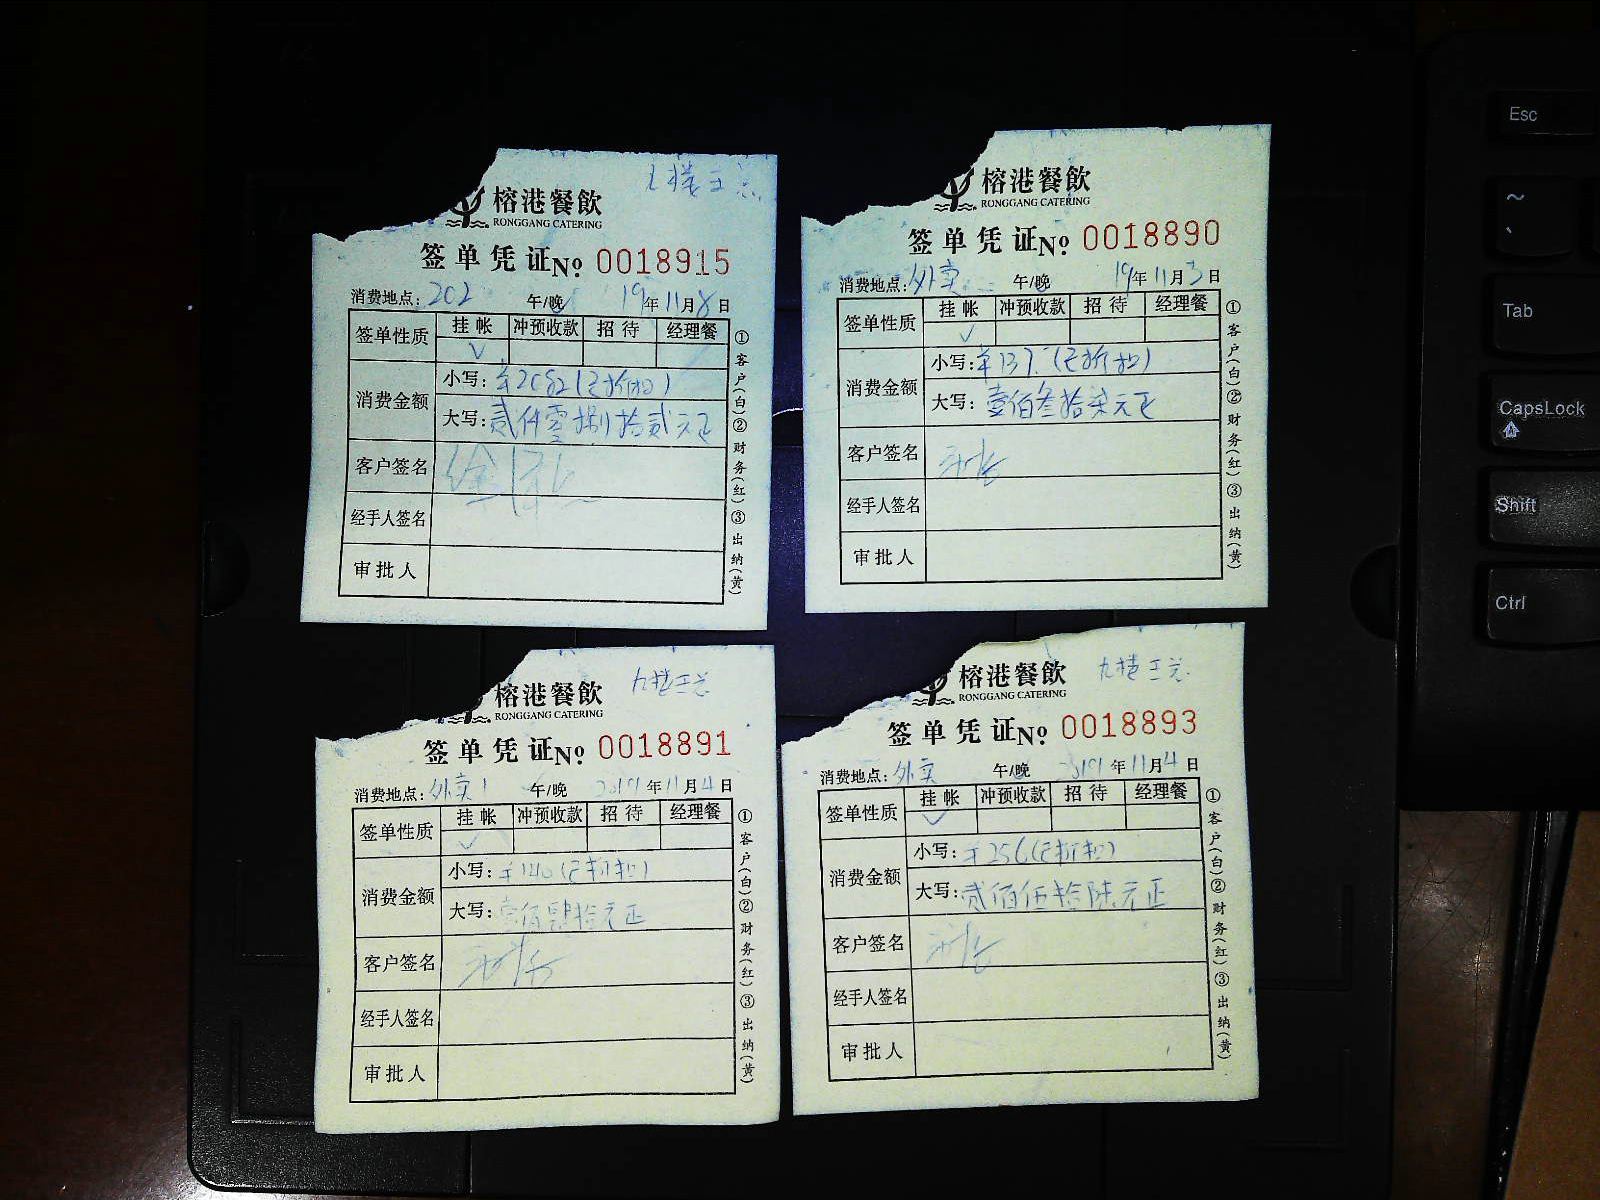 九楼王总
榕港餐飲
RONGGANG CATERING
签单凭证 No 0018915
消费地点: 202 午/晚 19年11月8日
签单性质 挂帐 冲预收款 招待 经理餐
√
消费金额 小写: ¥2082(已折扣)
大写: 贰仟零捌拾贰元正
客户签名
经手人签名
审批人
①客户(白)②财务(红)③出纳(黄)
榕港餐飲
RONGGANG CATERING
签单凭证 No 0018890
消费地点: 外卖 午/晚 19年11月3日
签单性质 挂帐 冲预收款 招待 经理餐
√
消费金额 小写: ¥137.(已折扣)
大写: 壹佰叁拾柒元正
客户签名
经手人签名
审批人
①客户(白)②财务(红)③出纳(黄)
九楼王总
榕港餐飲
RONGGANG CATERING
签单凭证 No 0018891
消费地点: 外卖 午/晚 2019年11月4日
签单性质 挂帐 冲预收款 招待 经理餐
√
消费金额 小写: ¥140(已折扣)
大写: 壹佰肆拾元正
客户签名
经手人签名
审批人
①客户(白)②财务(红)③出纳(黄)
九楼王总
榕港餐飲
RONGGANG CATERING
签单凭证 No 0018893
消费地点: 外卖 午/晚 2019年11月4日
签单性质 挂帐 冲预收款 招待 经理餐
√
消费金额 小写: ¥256(已折扣)
大写: 贰佰伍拾陆元正
客户签名
经手人签名
审批人
①客户(白)②财务(红)③出纳(黄)
Esc
~
Tab
CapsLock
Shift
Ctrl